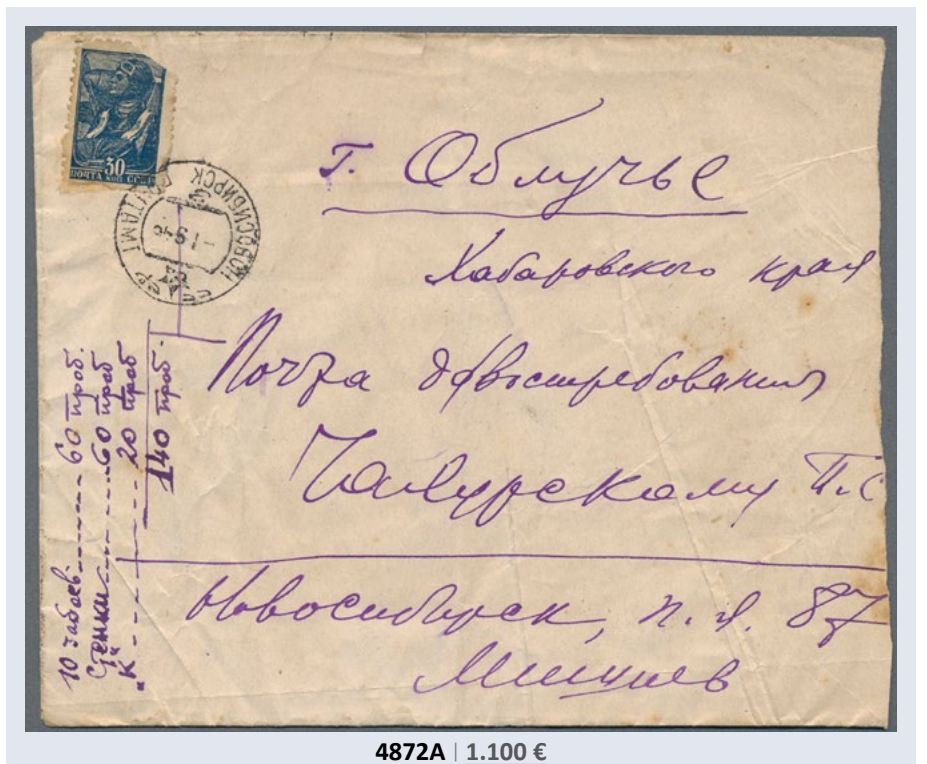 30
ПОЧТА КОП СССР
НОВОСИБИРСК ПОЧТАМТ
г. Облучье
Хабаровского края
Почта до востребования
П.С
Новосибирск, п. я. 87
10 забоев 60 проб.
Стенки 60 проб
"К" 20 проб
140 проб.
4872A | 1.100 €